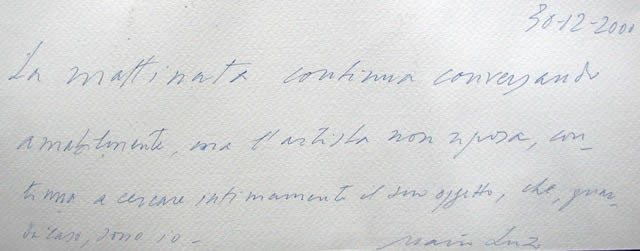 30-12-2000
La mattinata continua conversando
amabilmente, ma l'artista non riposa, con-
tinua a cercare intimamente il suo oggetto, che, guar-
da caso, sono io -
Mario Luzi